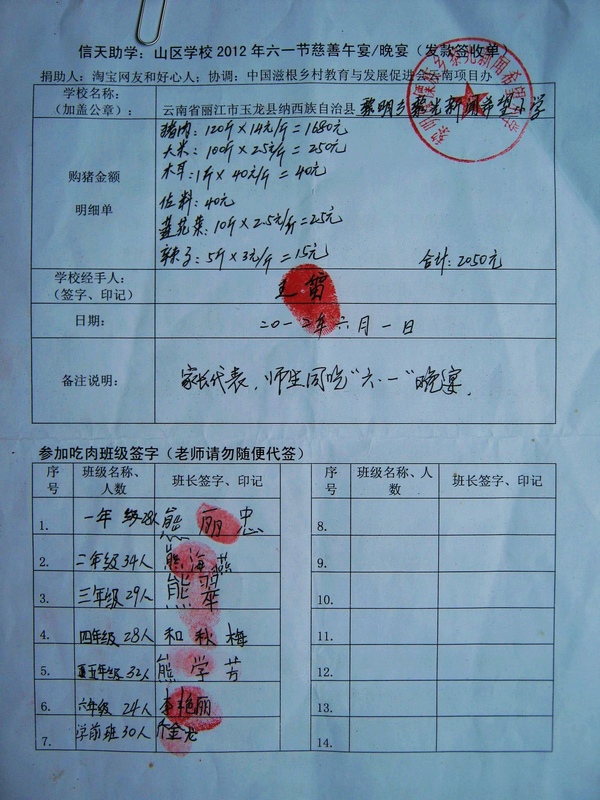 信天助学：山区学校 2012 年六一节慈善午宴/晚宴（发款签收单）
捐助人：淘宝网友和好心人；协调：中国滋根乡村教育与发展促进会云南项目办
学校名称：
（加盖公章）：
云南省丽江市玉龙县纳西族自治县 黎明乡黎光新闻希望小学
购猪金额
明细单
猪肉：120斤×14元/斤=1680元
大米：100斤×2.5元/斤=250元
木耳：1斤×40元/斤=40元
佐料：40元
10斤×2.5元/斤=25元
辣子：5斤×3元/斤=15元
合计：2050元
学校经手人：
（签字、印记）
日期：
二0一二年六月一日
备注说明：
家长代表，师生同吃“六·一”晚宴。
参加吃肉班级签字（老师请勿随便代签）
序号 班级名称、人数 班长签字、印记 序号 班级名称、人数 班长签字、印记
1. 一年级28人 熊丽忠 8.
2. 二年级34人 熊海燕 9.
3. 三年级29人 熊翠 10.
4. 四年级28人 和秋梅 11.
5. 五年级32人 熊学芳 12.
6. 六年级24人 李艳丽 13.
7. 学前班30人 金龙 14.